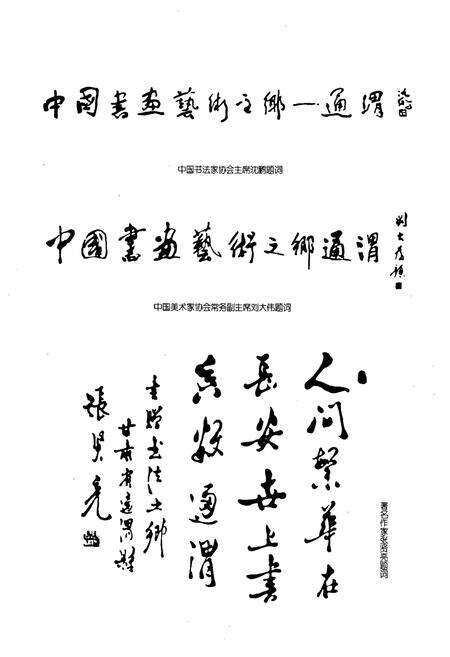 中國書畫藝術之鄉—通渭 沈鹏
中国书法家协会主席沈鹏题词
中國書畫藝術之鄉通渭
刘大为题
中国美术家协会常务副主席刘大伟题词
人间繁华在
长安世上书
家数通渭
書贈书法之鄉
甘肃省通渭县
張贤亮
著名作家张贤亮题词